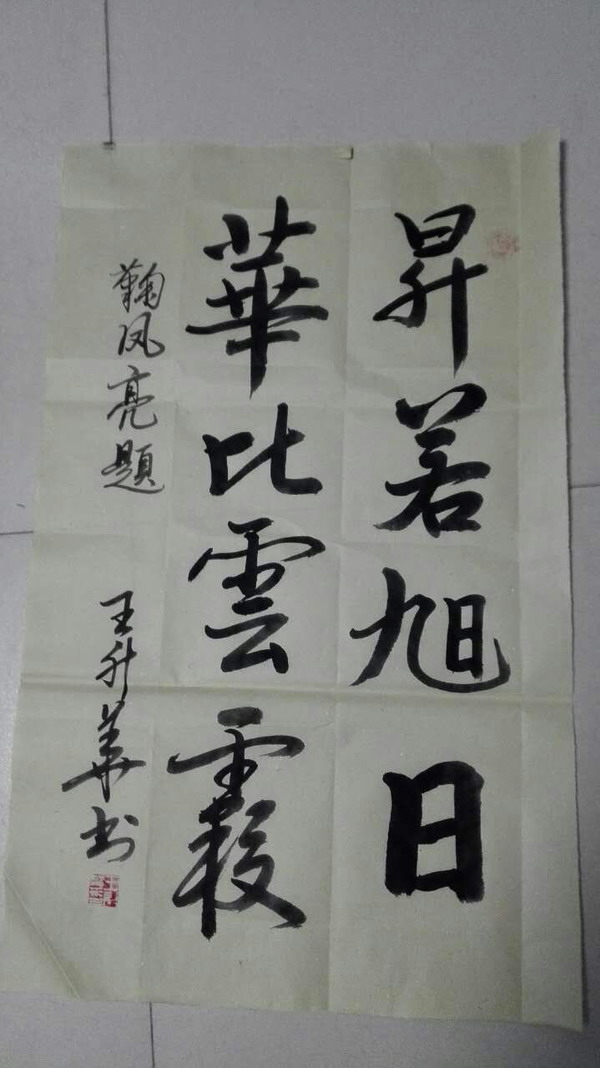 昇若旭日
華比雲霞
鞠凤亮題
王升華书